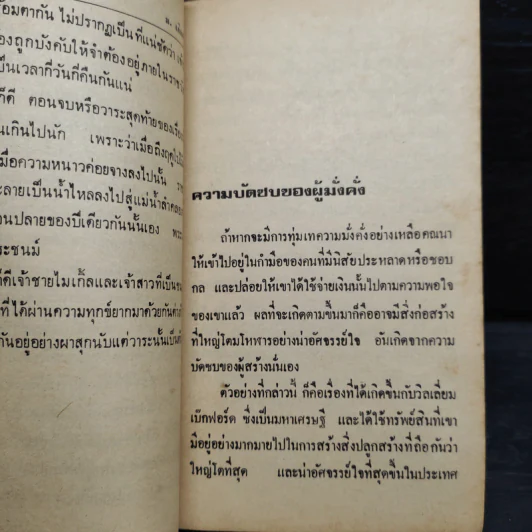 ้อมตากัน ไม่ปรากฏเป็นที่แน่ชัดว่า
องถูกบังคับให้จำต้องอยู่ภายในราช
ป็นเวลากี่วันกี่คืนกันแน่
ก็ดี ตอนจบหรือวาระสุดท้ายของเรื่อง
นเกินไปนัก เพราะว่าเมื่อถึงฤดู
มื่อความหนาวค่อยจางลงไปนั้น
ะลายเป็นน้ำไหลลงไปสู่แม่น้ำลำคลอง
อนปลายของปีเดียวกันนั้นเอง
ระชนม์
ก็ดีเจ้าชายไมเกิ้ลและเจ้าสาวที่เป็น
ที่ได้ผ่านความทุกข์ยากมาด้วยกัน
กันอยู่อย่างผาสุกนับแต่วาระนั้นเป็น
ความบัดซบของผู้มั่งคั่ง
ถ้าหากจะมีการทุ่มเทความมั่งคั่งอย่างเหลือคณนา
ให้เข้าไปอยู่ในกำมือของคนที่มีนิสัยประหลาดหรือชอบ
กล และปล่อยให้เขาได้ใช้จ่ายเงินนั้นไปตามความพอใจ
ของเขาแล้ว ผลที่จะเกิดตามขึ้นมาก็คืออาจมีสิ่งก่อสร้าง
ที่ใหญ่โตมโหฬารอย่างน่าอัศจรรย์ใจ อันเกิดจากความ
บัดซบของผู้สร้างนั่นเอง
ตัวอย่างที่กล่าวนี้ ก็คือเรื่องที่ได้เกิดขึ้นกับวิลเลี่ยม
เบ๊กฟอร์ด ซึ่งเป็นมหาเศรษฐี และได้ใช้ทรัพย์สินที่เขา
มีอยู่อย่างมากมายไปในการสร้างสิ่งปลูกสร้างที่ถือกันว่า
ใหญ่โตที่สุด และน่าอัศจรรย์ใจที่สุดขึ้นในประเทศ